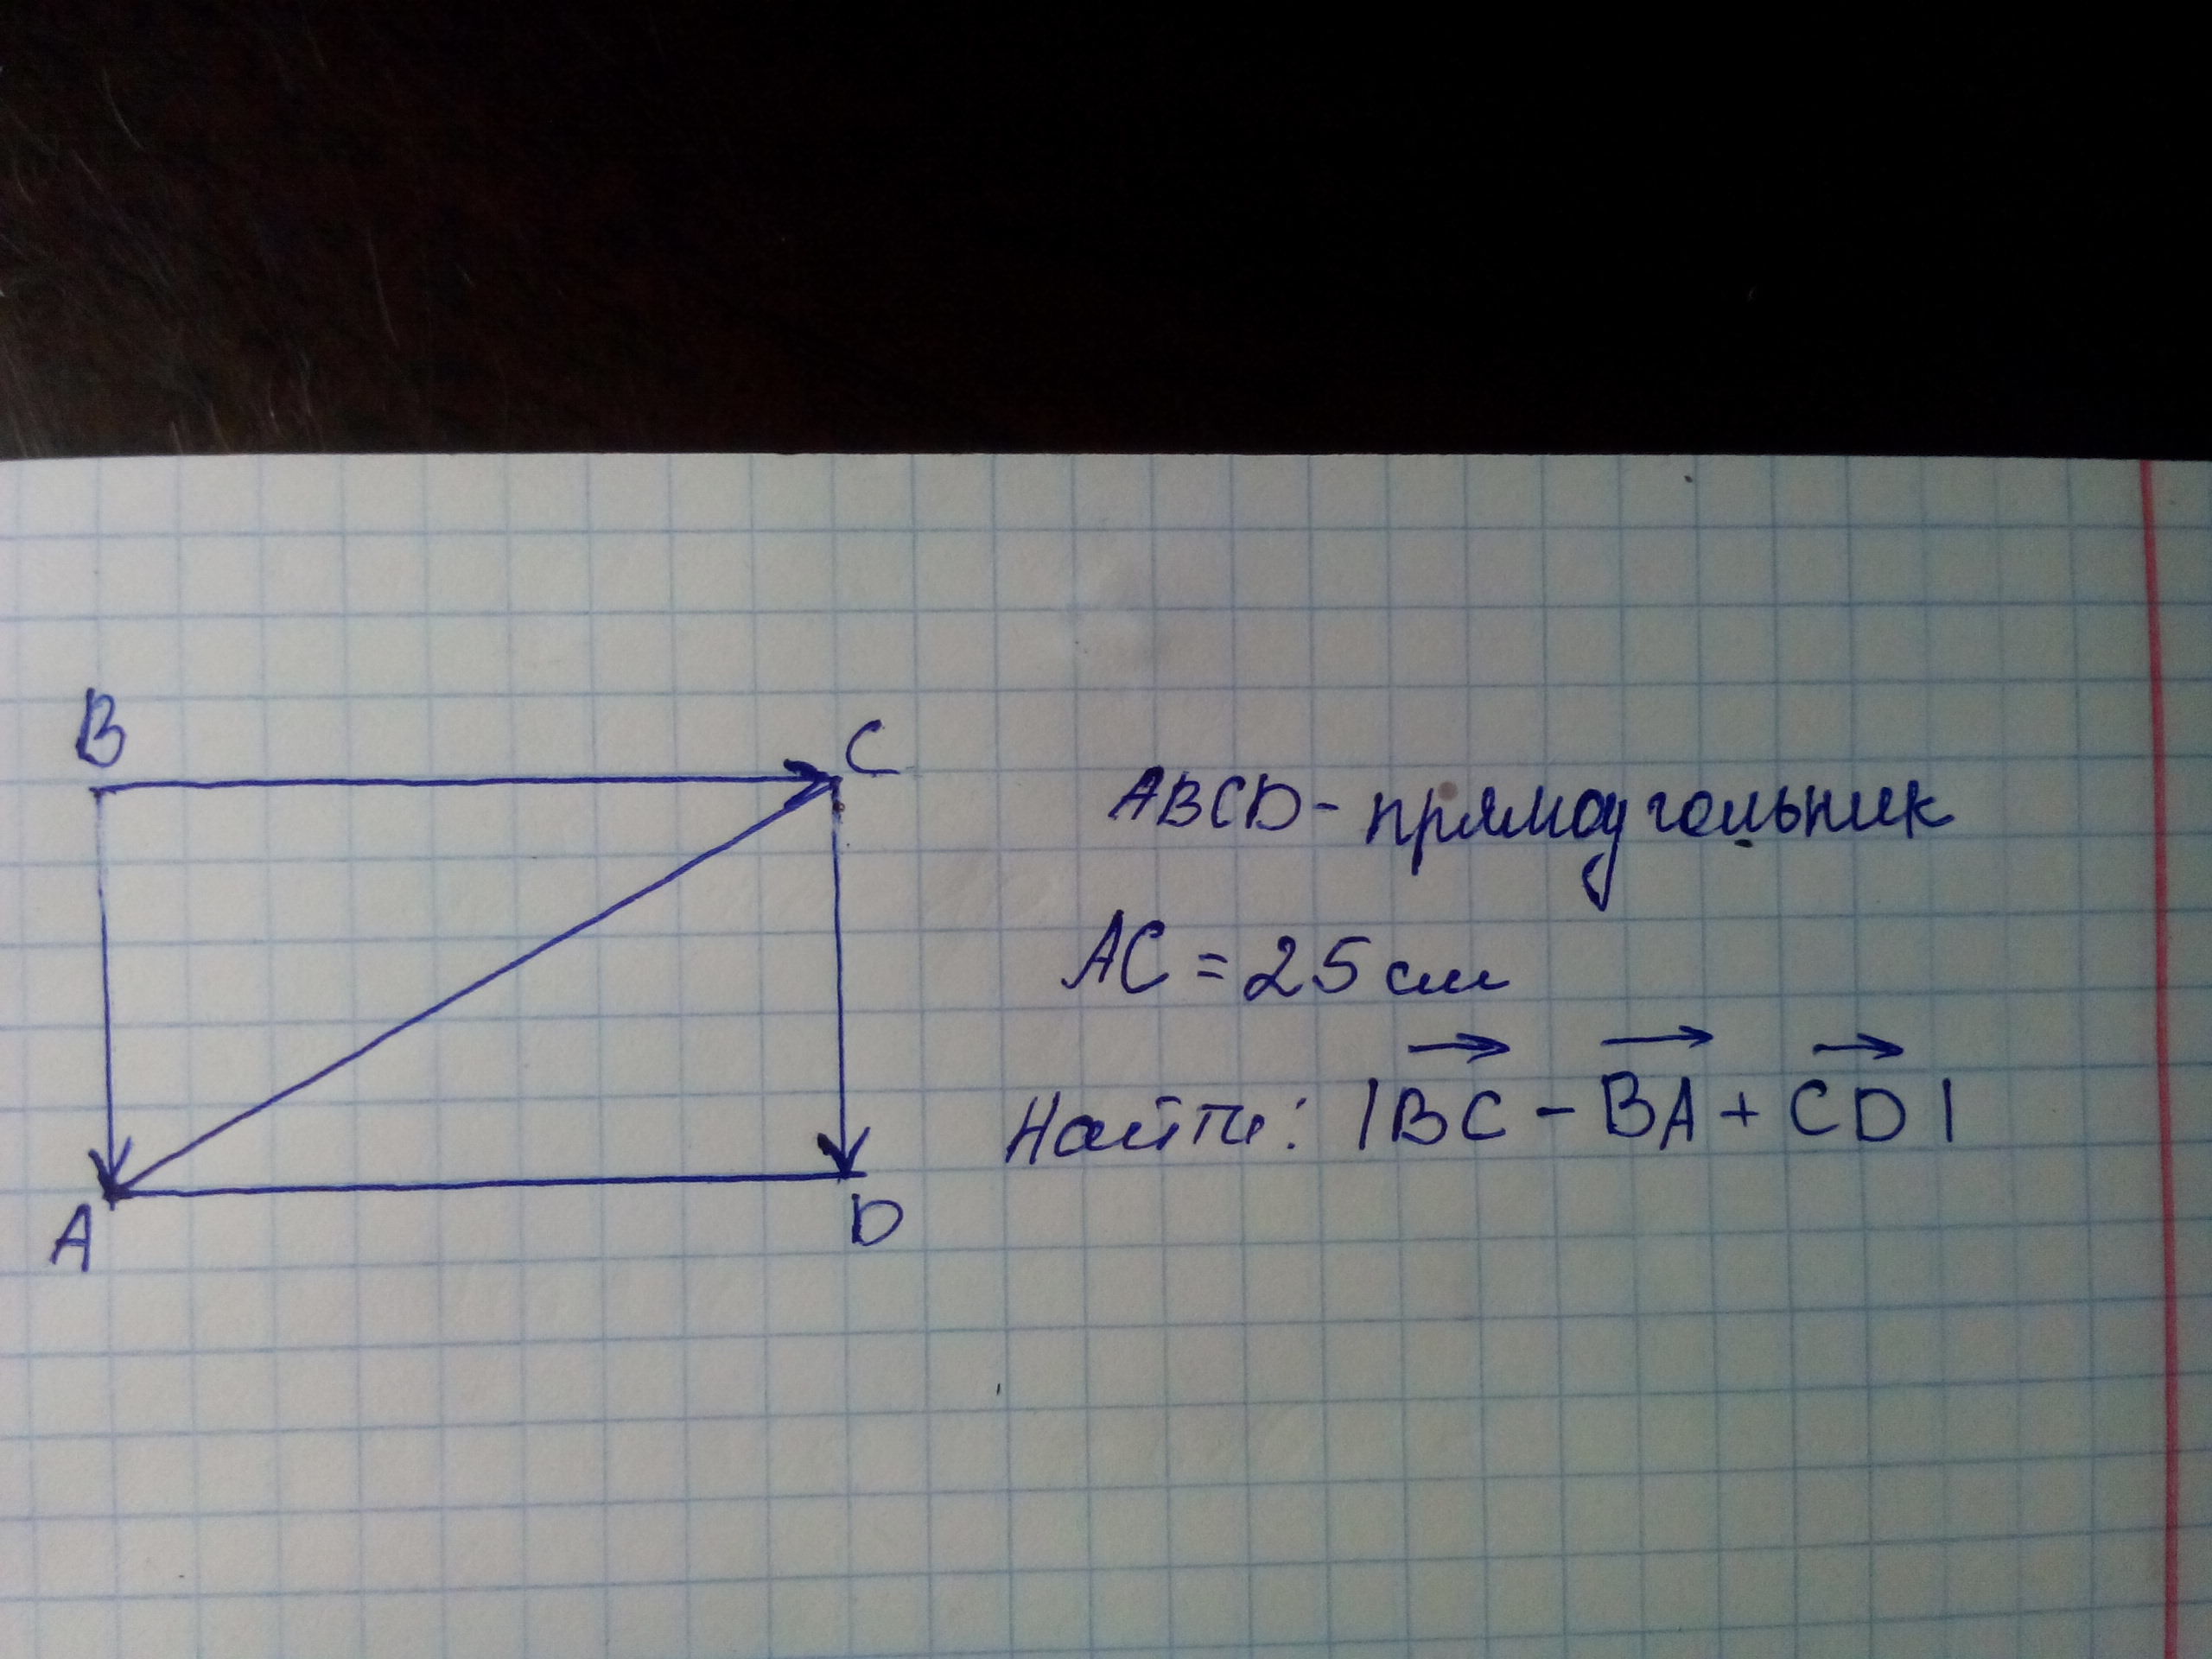 B
C
ABCD - прямоугольник
AC = 25 см
Найти: |BC - BA + CD|
A
D